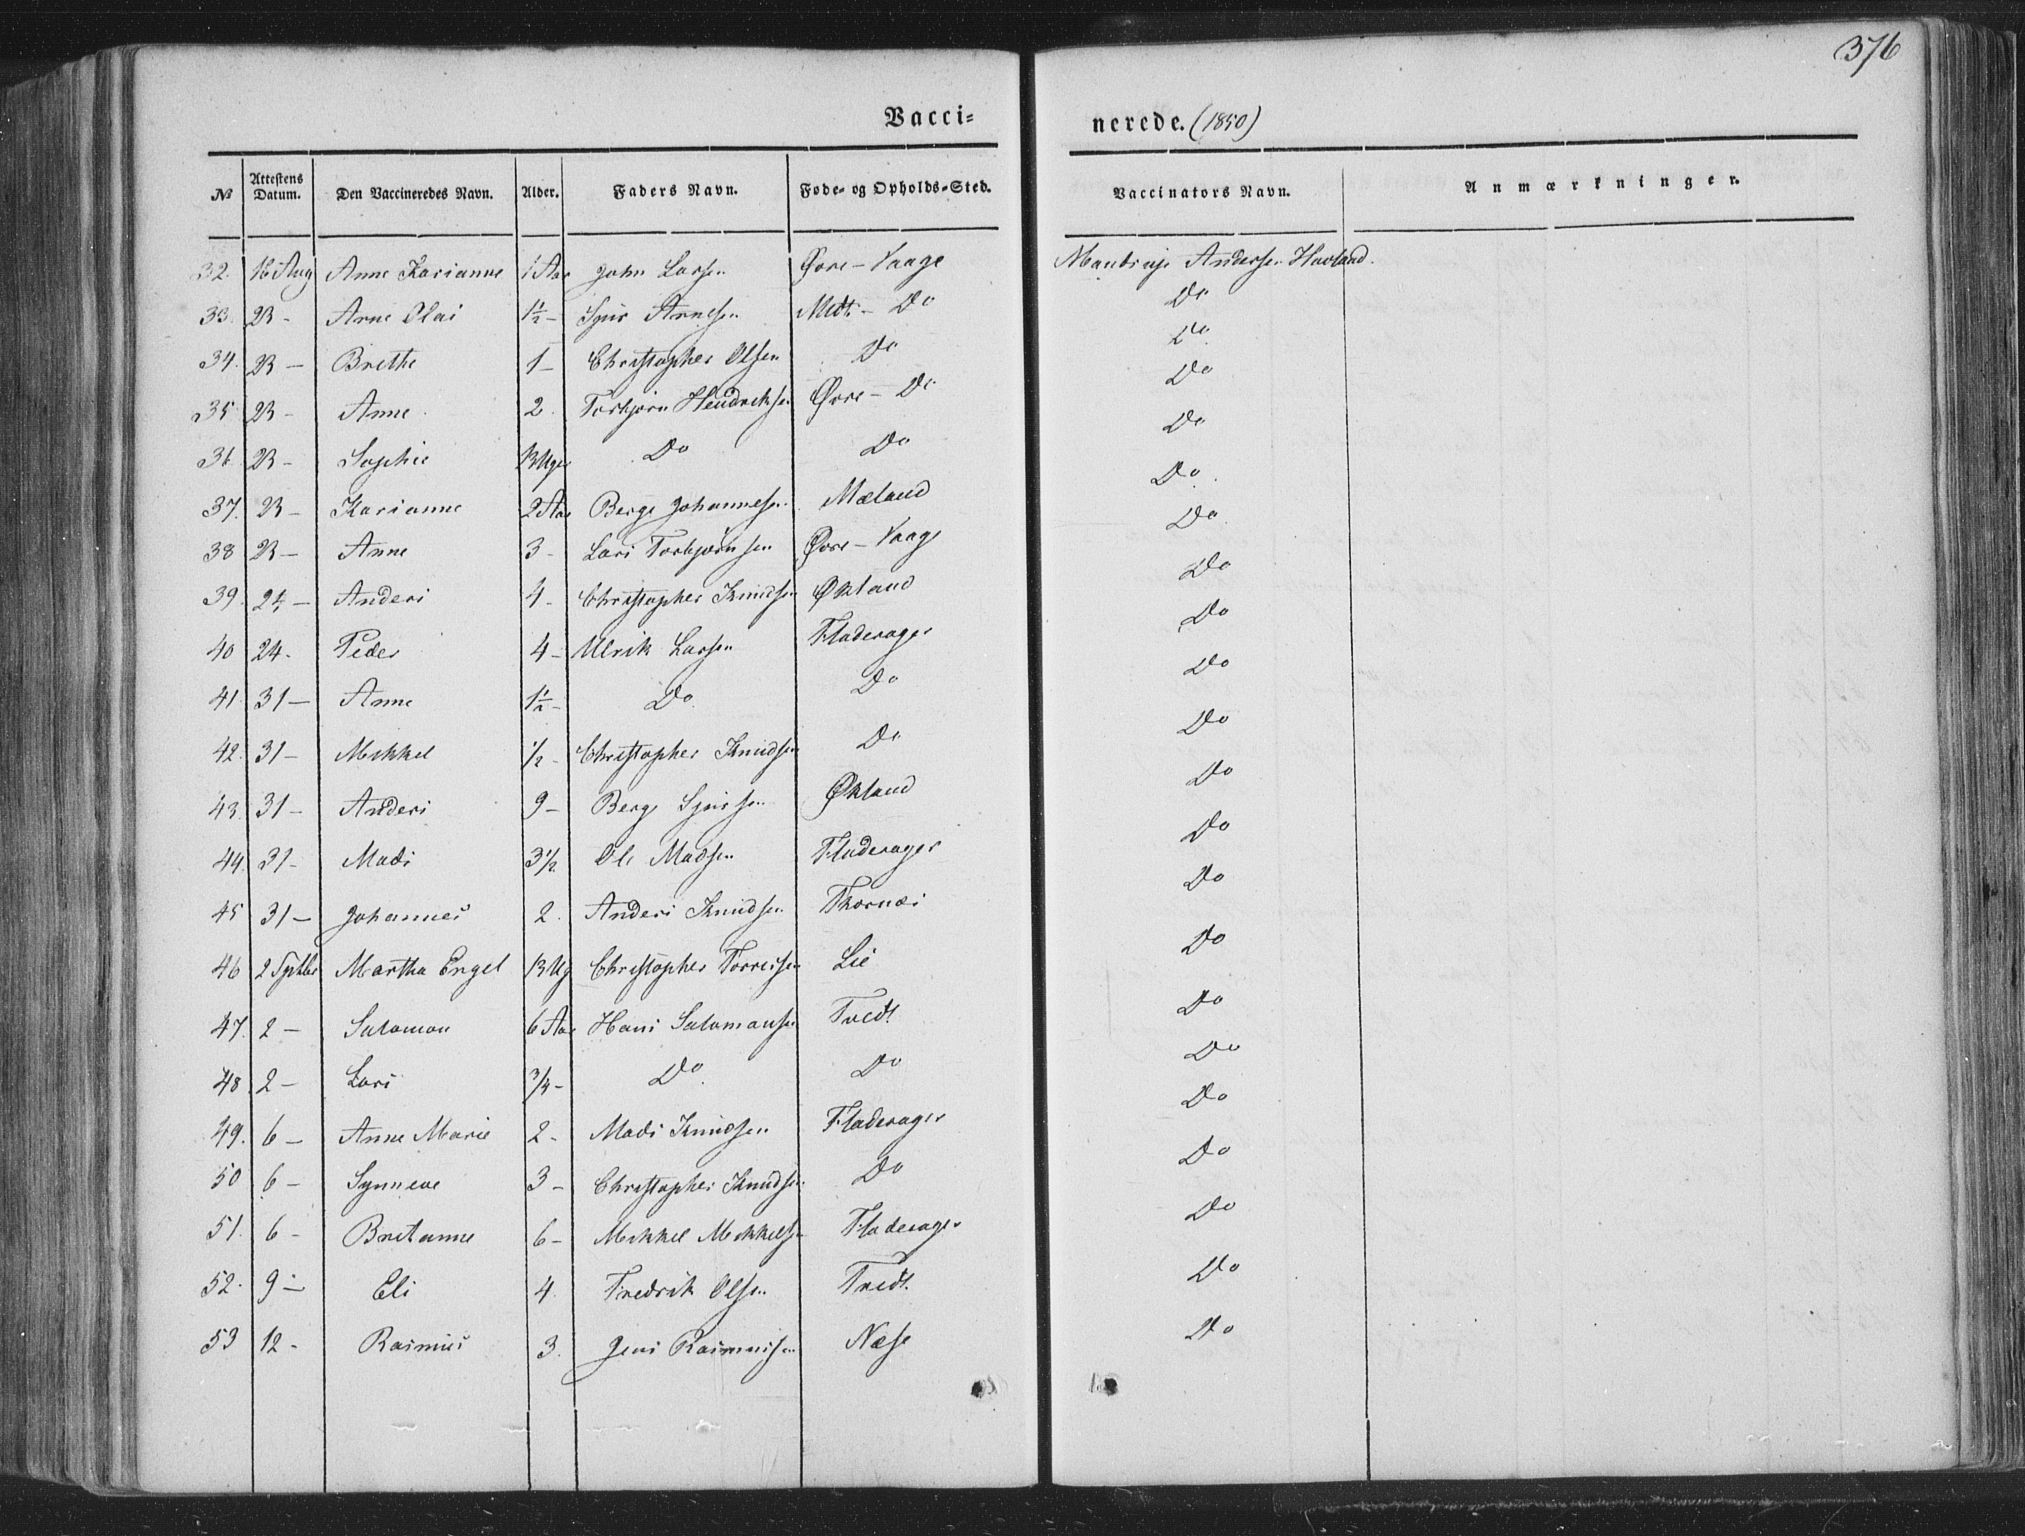 376
Vacci- nerede. (1850)
№ Attestens Datum. Den Vaccineredes Navn. Alder. Faders Navn. Føde- og Opholds-Sted. Vaccinators Navn. Anmærkninger.
32. 16 Aug Anne Karianne 1 Aar John Larsen Øvre-Vaage Andersen Havland.
33. 23 - Arne Olai 1½ - Sjur Arnesen Medt - Do Do
34. 23 - Brethe 1 - Christopher Olsen Do Do
35 23 - Anne 2. Torbjørn Hendriksen Øvre - Do Do
36 23 - Sophie 13 Uger Do Do Do
37. 23 - Karianne 2 Aar Berge Johannesen Mæland Do
38 23 - Anne 3 - Lars Torbjørnsen Øvre - Vaage Do
39. 24 - Anders 4 - Christopher Knudsen Økland Do
40 24 - Peder 4 - Ulrik Larsen Fladerager Do
41. 31 - Anne 1½ - Do Do Do
42. 31 - Mikkel ½ - Christopher Knudsen Do Do
43. 31 - Anders 9 - Berge Sjursen Økland Do
44. 31 - Mads 3½ Ole Madsen Fladerager Do
45 31 - Johannes 2. Anders Knudsen Thornæs Do
46 2 Sptbr Martha Engel 13 Ug Christopher Torrissen Lie Do
47. 2 - Salomon 6 Aar Hans Salomonsen Tvedt Do
48. 2 - Lars ¾ - Do Do Do
49. 6 - Anne Marie 2 - Mads Knudsen Fladerager Do
50 6 - Synneve 3 - Christopher Knudsen Do Do
51. 6 - Britanne 6 - Mikkel Mikkelsen Fladerager Do
52. 9 - Eli 4. Fredrik Olsen Tvedt. Do
53 12 - Rasmus 3. Jens Rasmussen Næse Do